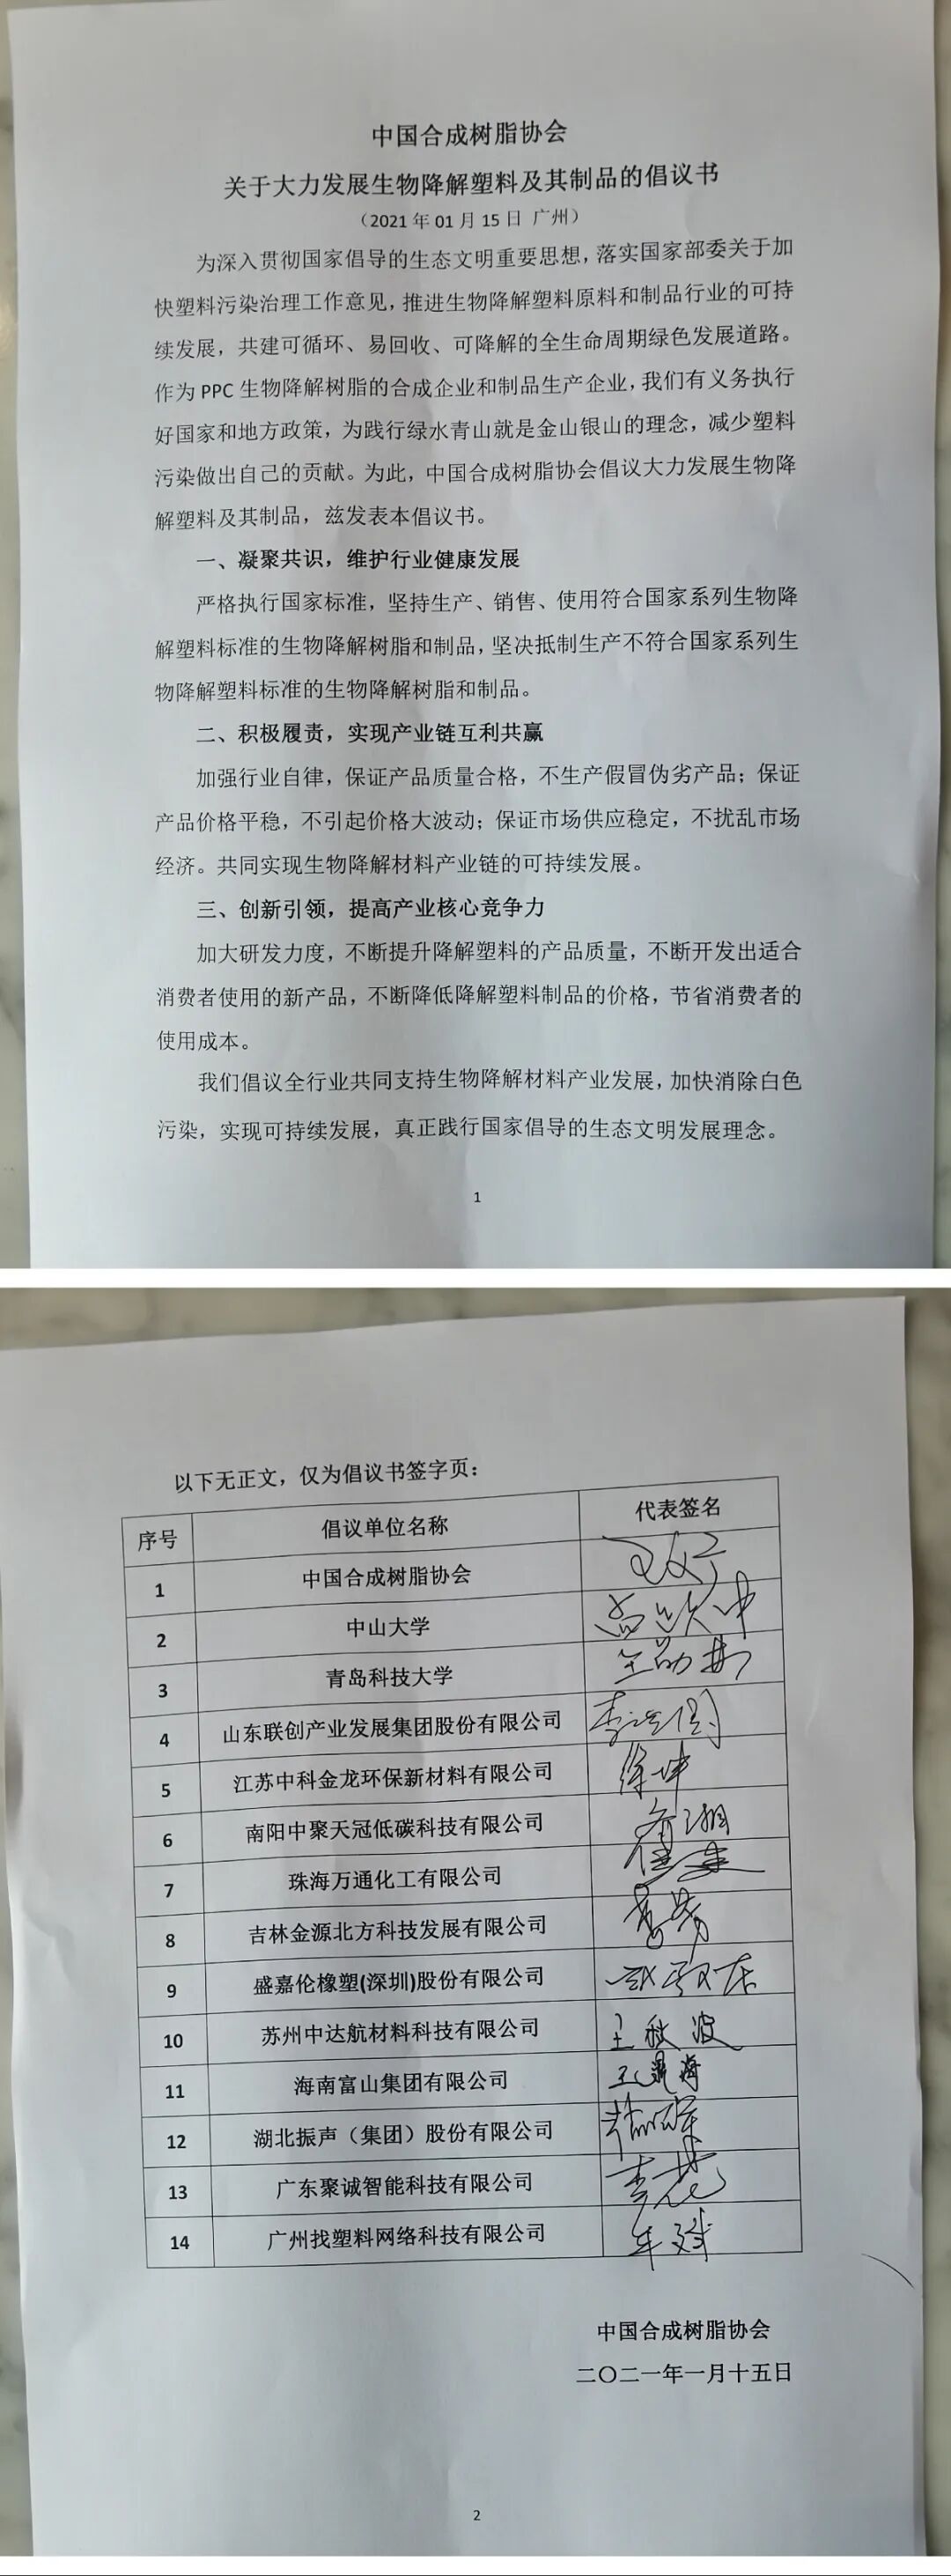 中国合成树脂协会
关于大力发展生物降解塑料及其制品的倡议书
（2021 年 01 月 15 日 广州）
为深入贯彻国家倡导的生态文明重要思想，落实国家部委关于加
快塑料污染治理工作意见，推进生物降解塑料原料和制品行业的可持
续发展，共建可循环、易回收、可降解的全生命周期绿色发展道路。
作为 PPC 生物降解树脂的合成企业和制品生产企业，我们有义务执行
好国家和地方政策，为践行绿水青山就是金山银山的理念，减少塑料
污染做出自己的贡献。为此，中国合成树脂协会倡议大力发展生物降
解塑料及其制品，兹发表本倡议书。
一、凝聚共识，维护行业健康发展
严格执行国家标准，坚持生产、销售、使用符合国家系列生物降
解塑料标准的生物降解树脂和制品，坚决抵制生产不符合国家系列生
物降解塑料标准的生物降解树脂和制品。
二、积极履责，实现产业链互利共赢
加强行业自律，保证产品质量合格，不生产假冒伪劣产品；保证
产品价格平稳，不引起价格大波动；保证市场供应稳定，不扰乱市场
经济。共同实现生物降解材料产业链的可持续发展。
三、创新引领，提高产业核心竞争力
加大研发力度，不断提升降解塑料的产品质量，不断开发出适合
消费者使用的新产品，不断降低降解塑料制品的价格，节省消费者的
使用成本。
我们倡议全行业共同支持生物降解材料产业发展，加快消除白色
污染，实现可持续发展，真正践行国家倡导的生态文明发展理念。
1
以下无正文，仅为倡议书签字页：
序号 倡议单位名称 代表签名
1 中国合成树脂协会
2 中山大学
3 青岛科技大学
4 山东联创产业发展集团股份有限公司
5 江苏中科金龙环保新材料有限公司 徐坤
6 南阳中聚天冠低碳科技有限公司
7 珠海万通化工有限公司
8 吉林金源北方科技发展有限公司
9 盛嘉伦橡塑(深圳)股份有限公司
10 苏州中达航材料科技有限公司 王秋波
11 海南富山集团有限公司
12 湖北振声（集团）股份有限公司
13 广东聚诚智能科技有限公司
14 广州找塑料网络科技有限公司
中国合成树脂协会
二〇二一年一月十五日
2